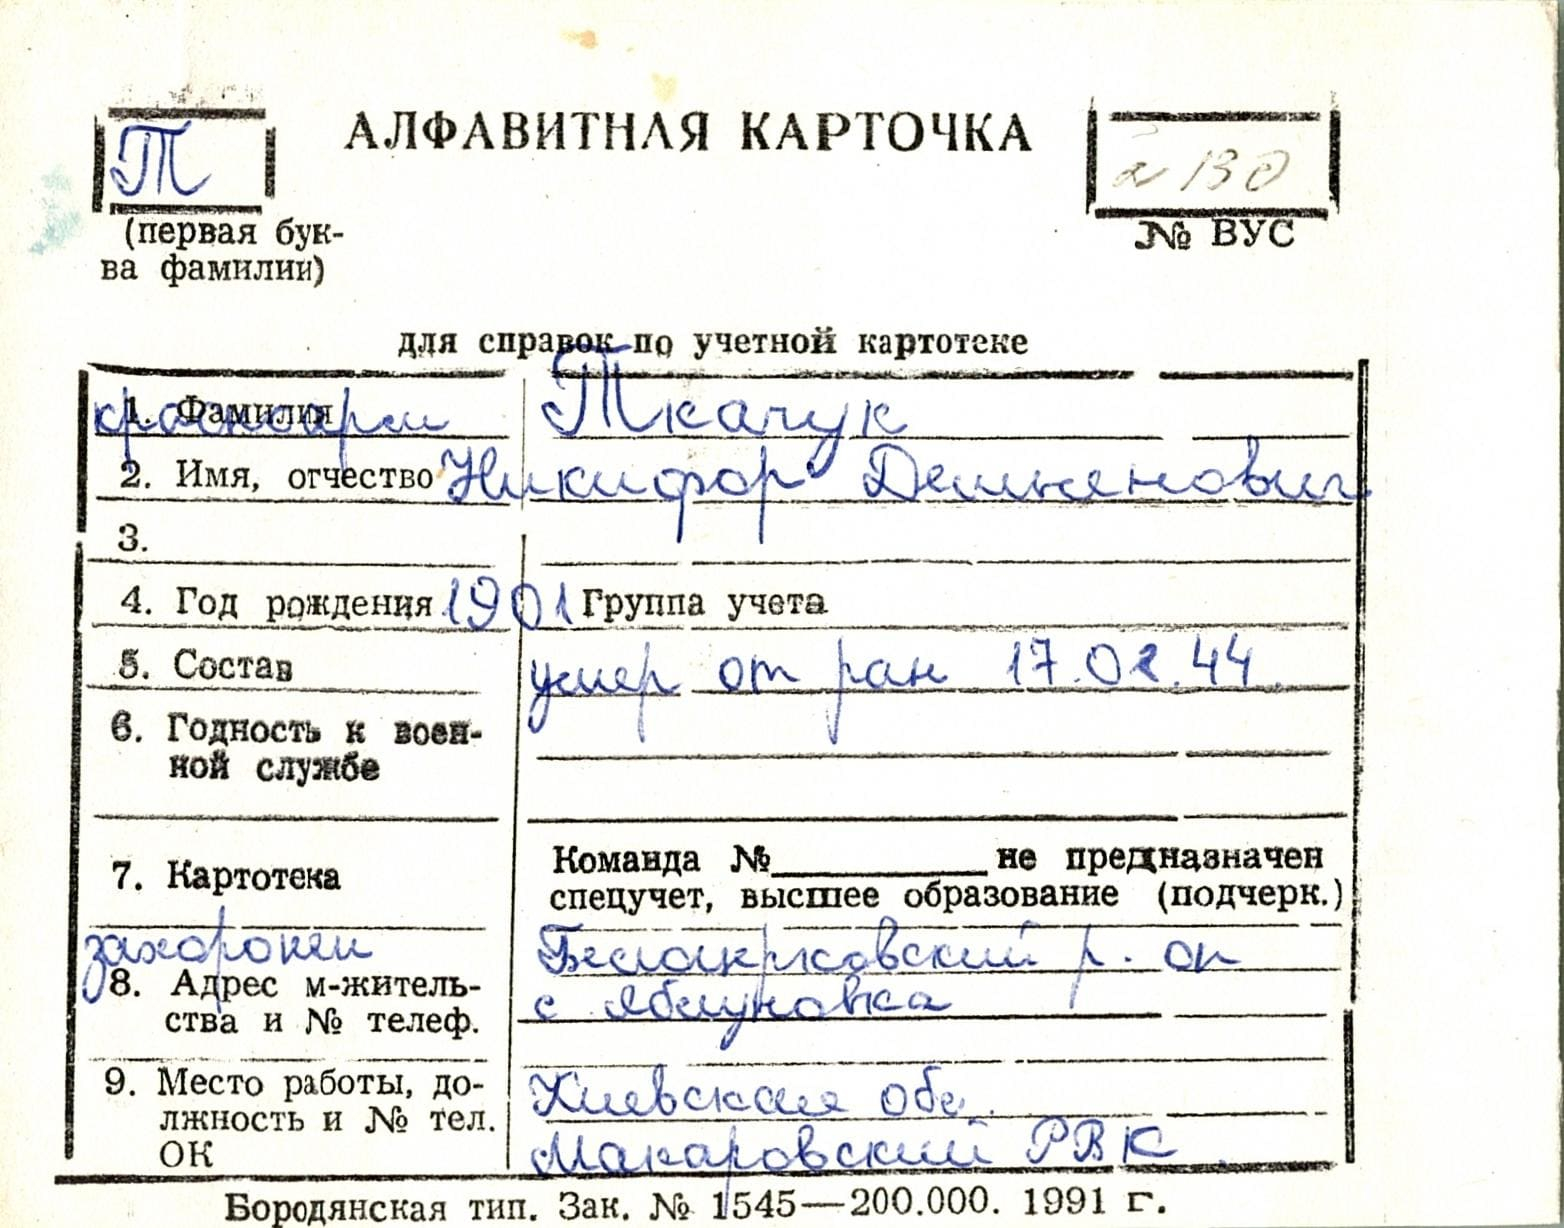 Т
АЛФАВИТНАЯ КАРТОЧКА
130
(первая бук-
ва фамилии)
№ ВУС
для справок по учетной картотеке
1. Фамилия Ткачук
красноарм
2. Имя, отчество Никифор Демьянович
3.
4. Год рождения 1901 Группа учета
5. Состав умер от ран 17.02.44.
6. Годность к воен-
ной службе
7. Картотека
Команда №__________ не предназначен
спецучет, высшее образование (подчерк.)
захоронен Белоцерковский р. он
8. Адрес м-житель-
ства и № телеф.
с Яблуновка
9. Место работы, до-
лжность и № тел.
ОК
Киевская обл.
Макаровский РВК
Бородянская тип. Зак. № 1545—200.000. 1991 г.